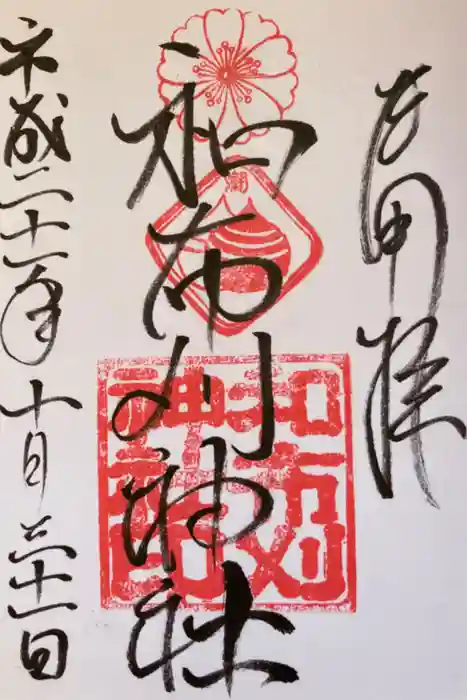 奉拝
和布刈神社
平成二十一年十月三十一日
和布刈
神社印